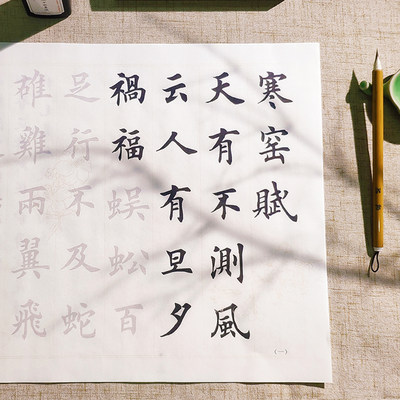 寒窑賦
天有不測風
云人有旦夕
禍福蜈蚣百
足行不及蛇
雄雞兩翼飛
（一）